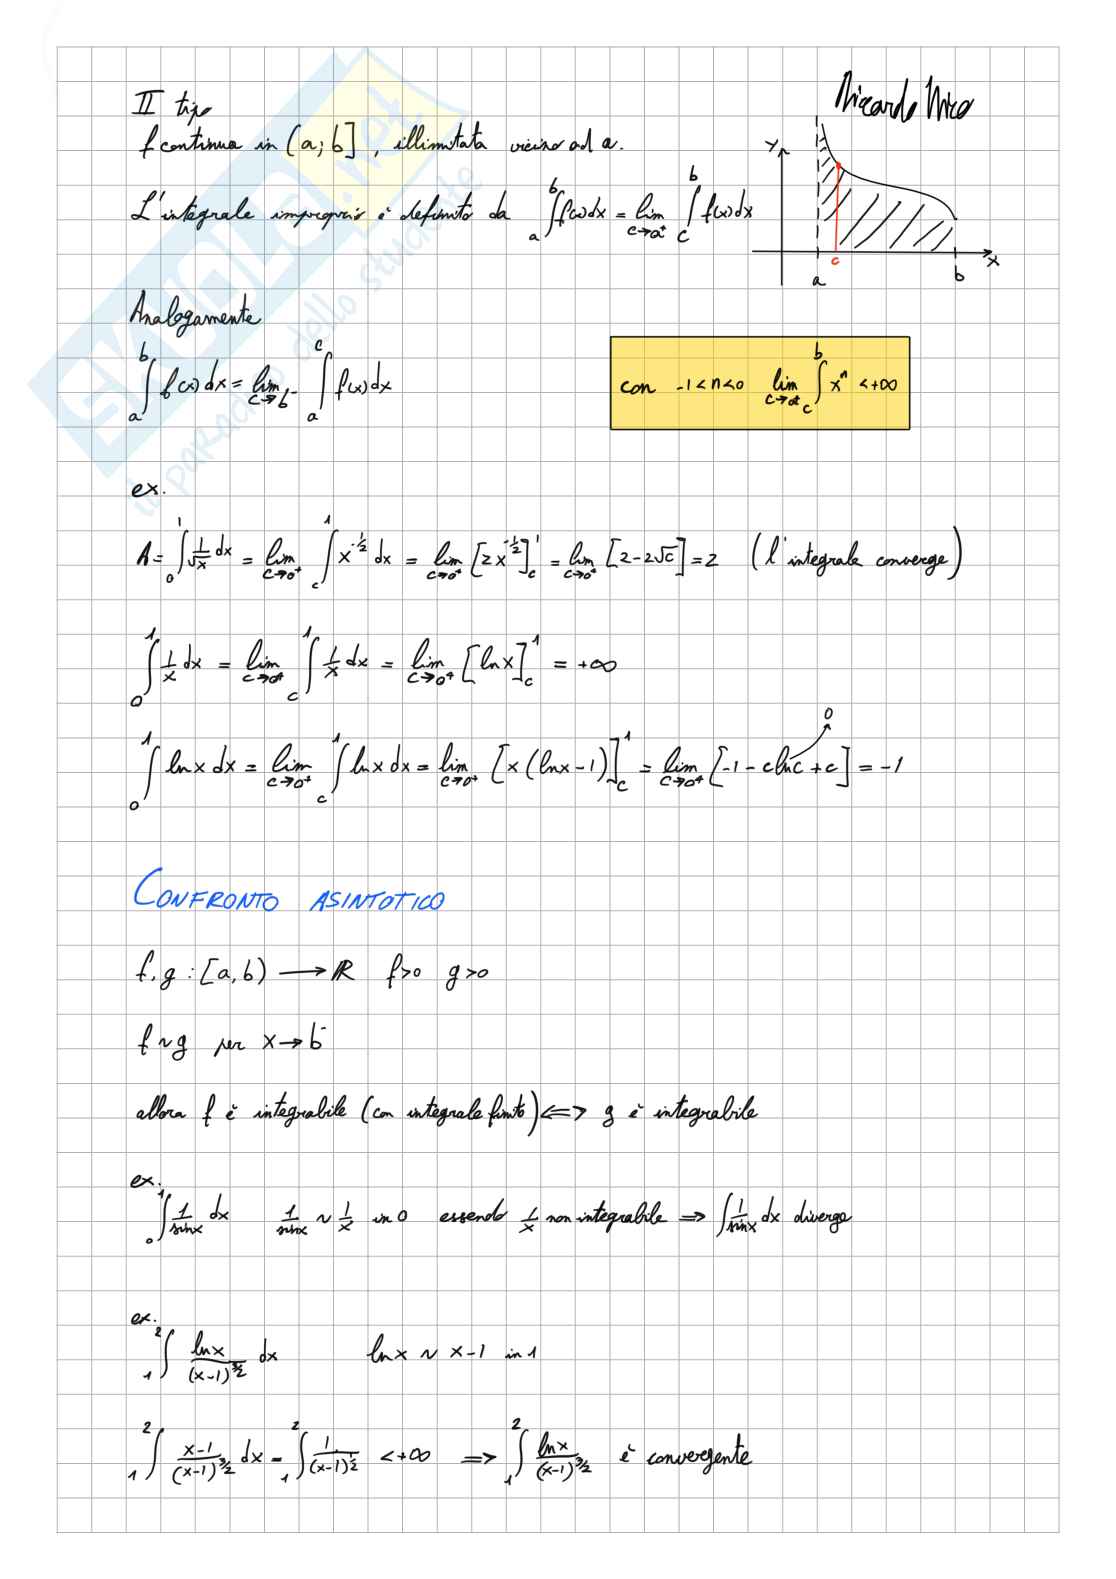 Riccardo Mico
II tipo
f continua in (a; b] , illimitata vicino ad a.
L'integrale improprio è definito da ∫_a^b f(x)dx = lim_{c→a⁺} ∫_c^b f(x)dx
y
x
a
c
b
Analogamente
∫_a^b f(x)dx = lim_{c→b⁻} ∫_a^c f(x)dx
con -1<n<0 lim_{c→a⁺} ∫_c^b x^n <+∞
ex.
A= ∫_0^1 1/√x dx = lim_{c→0⁺} ∫_c^1 x^{-1/2} dx = lim_{c→0⁺} [2x^{-1/2}]_c^1 = lim_{c→0⁺} [2-2√c] = 2 (l'integrale converge)
∫_0^1 1/x dx = lim_{c→0⁺} ∫_c^1 1/x dx = lim_{c→0⁺} [ln x]_c^1 = +∞
∫_0^1 ln x dx = lim_{c→0⁺} ∫_c^1 ln x dx = lim_{c→0⁺} [x(ln x-1)]_c^1 = lim_{c→0⁺} [-1-c ln c+c] = -1
0
CONFRONTO ASINTOTICO
f,g : [a,b) → ℝ f>0 g>0
f ~ g per x→b⁻
allora f è integrabile (con integrale finito) ⟺ g è integrabile
ex.
∫_0^1 1/sinx dx 1/sinx ~ 1/x in 0 essendo 1/x non integrabile ⟹ ∫ 1/sinx dx diverge
ex.
∫_1^2 ln x/(x-1)^{3/2} dx ln x ~ x-1 in 1
∫_1^2 x-1/(x-1)^{3/2} dx = ∫_1^2 1/(x-1)^{1/2} <+∞ ⟹ ∫_1^2 ln x/(x-1)^{3/2} è convergente
SKUOLA.net
il paradiso dello studente